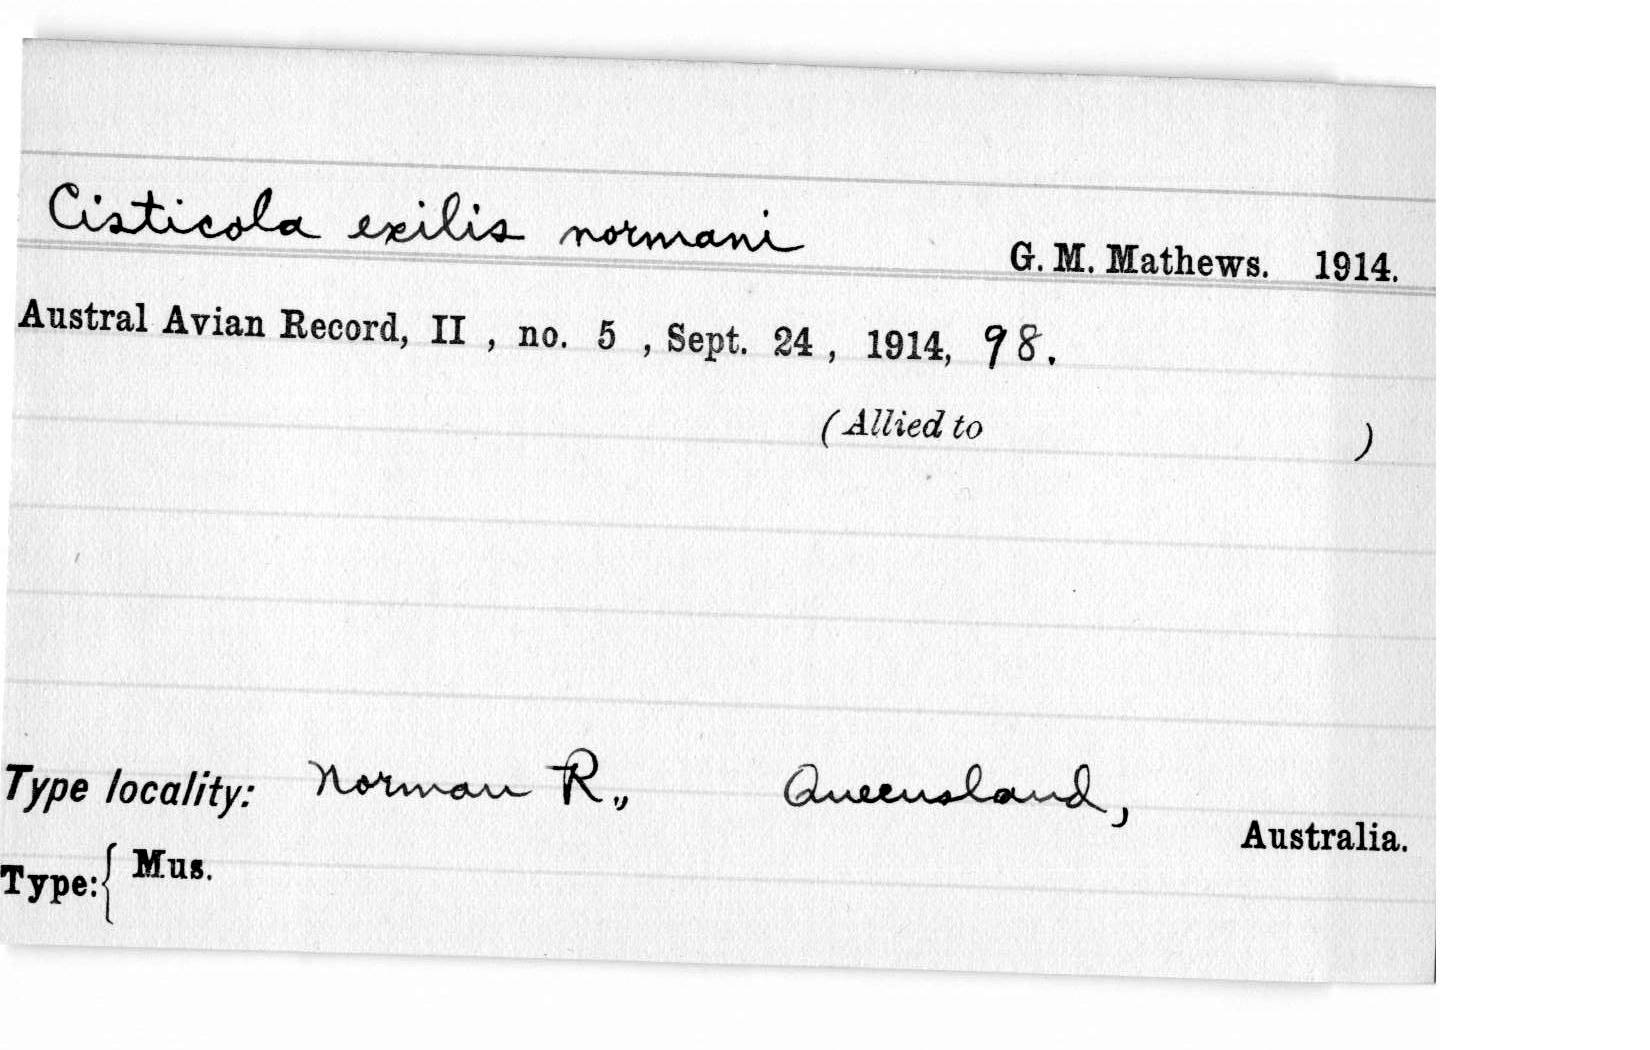 Cisticola exilis normani G. M. Mathews. 1914.
Austral Avian Record, II , no. 5 , Sept. 24 , 1914, 98.
(Allied to )
Type locality: Norman R., Queensland, Australia.
Type: { Mus.